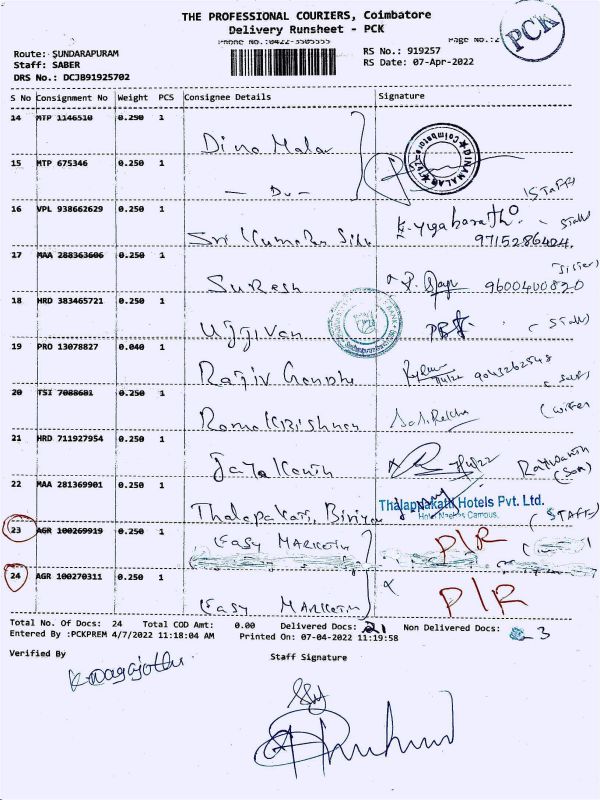 THE PROFESSIONAL COURIERS, Coimbatore
Delivery Runsheet - PCK
PCK
Phone No.:0422-3505555
Page No.:2
Route: SUNDARAPURAM
Staff: SABER
DRS No.: DCJB91925702
RS No.: 919257
RS Date: 07-Apr-2022
S No Consignment No Weight PCS Consignee Details Signature
14 MTP 1146510 0.250 1 Dina Malar
DINAMALAR Coimbatore
15 MTP 675346 0.250 1 — Do —
16 VPL 938662629 0.250 1 Sri Kumaran (Staff)
9715286404
17 MAA 288363606 0.250 1 Suresh 9600400820 (Sister)
18 HRD 383465721 0.250 1 Ujjivan (Staff)
19 PRO 13078827 0.040 1 Rajiv Gandhi 9043262548 (Self)
20 TSI 7088681 0.250 1 Ramakrishnan Sasi Rekha (Wife)
21 HRD 711927954 0.250 1 Jayakanth (Son)
22 MAA 281369901 0.250 1 Thalapakati, Biriyani
Thalappakatti Hotels Pvt. Ltd.
(STAFF)
23 AGR 100269919 0.250 1 EASY MARKETIN P/R
24 AGR 100270311 0.250 1 EASY MARKETIN P/R
Total No. Of Docs: 24 Total COD Amt: 0.00 Delivered Docs: 21 Non Delivered Docs: 3
Entered By :PCKPREM 4/7/2022 11:18:04 AM Printed On: 07-04-2022 11:19:58
Verified By
Staff Signature